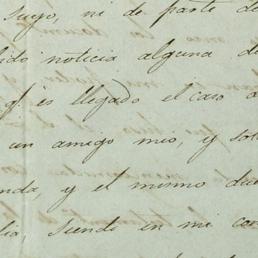 suyo, ni de parte de
noticia alguna d
q.e es llegado el caso
un amigo mio, y so
y el mismo du
siendo en mi co